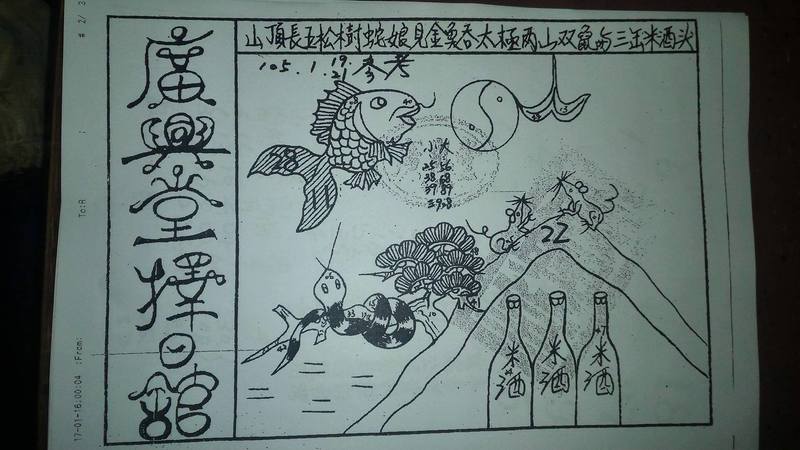 # 2/ 3
To:R
:From:
17-01-16.00:04
廣興堂擇日舘
山頂長五松樹蛇娘見金魚吞太極两山双鼠与三缶米酒头
105.1.19.
21
参考
38
小大
25 56
38 68
39 89
3928
22
米酒
米酒
米酒